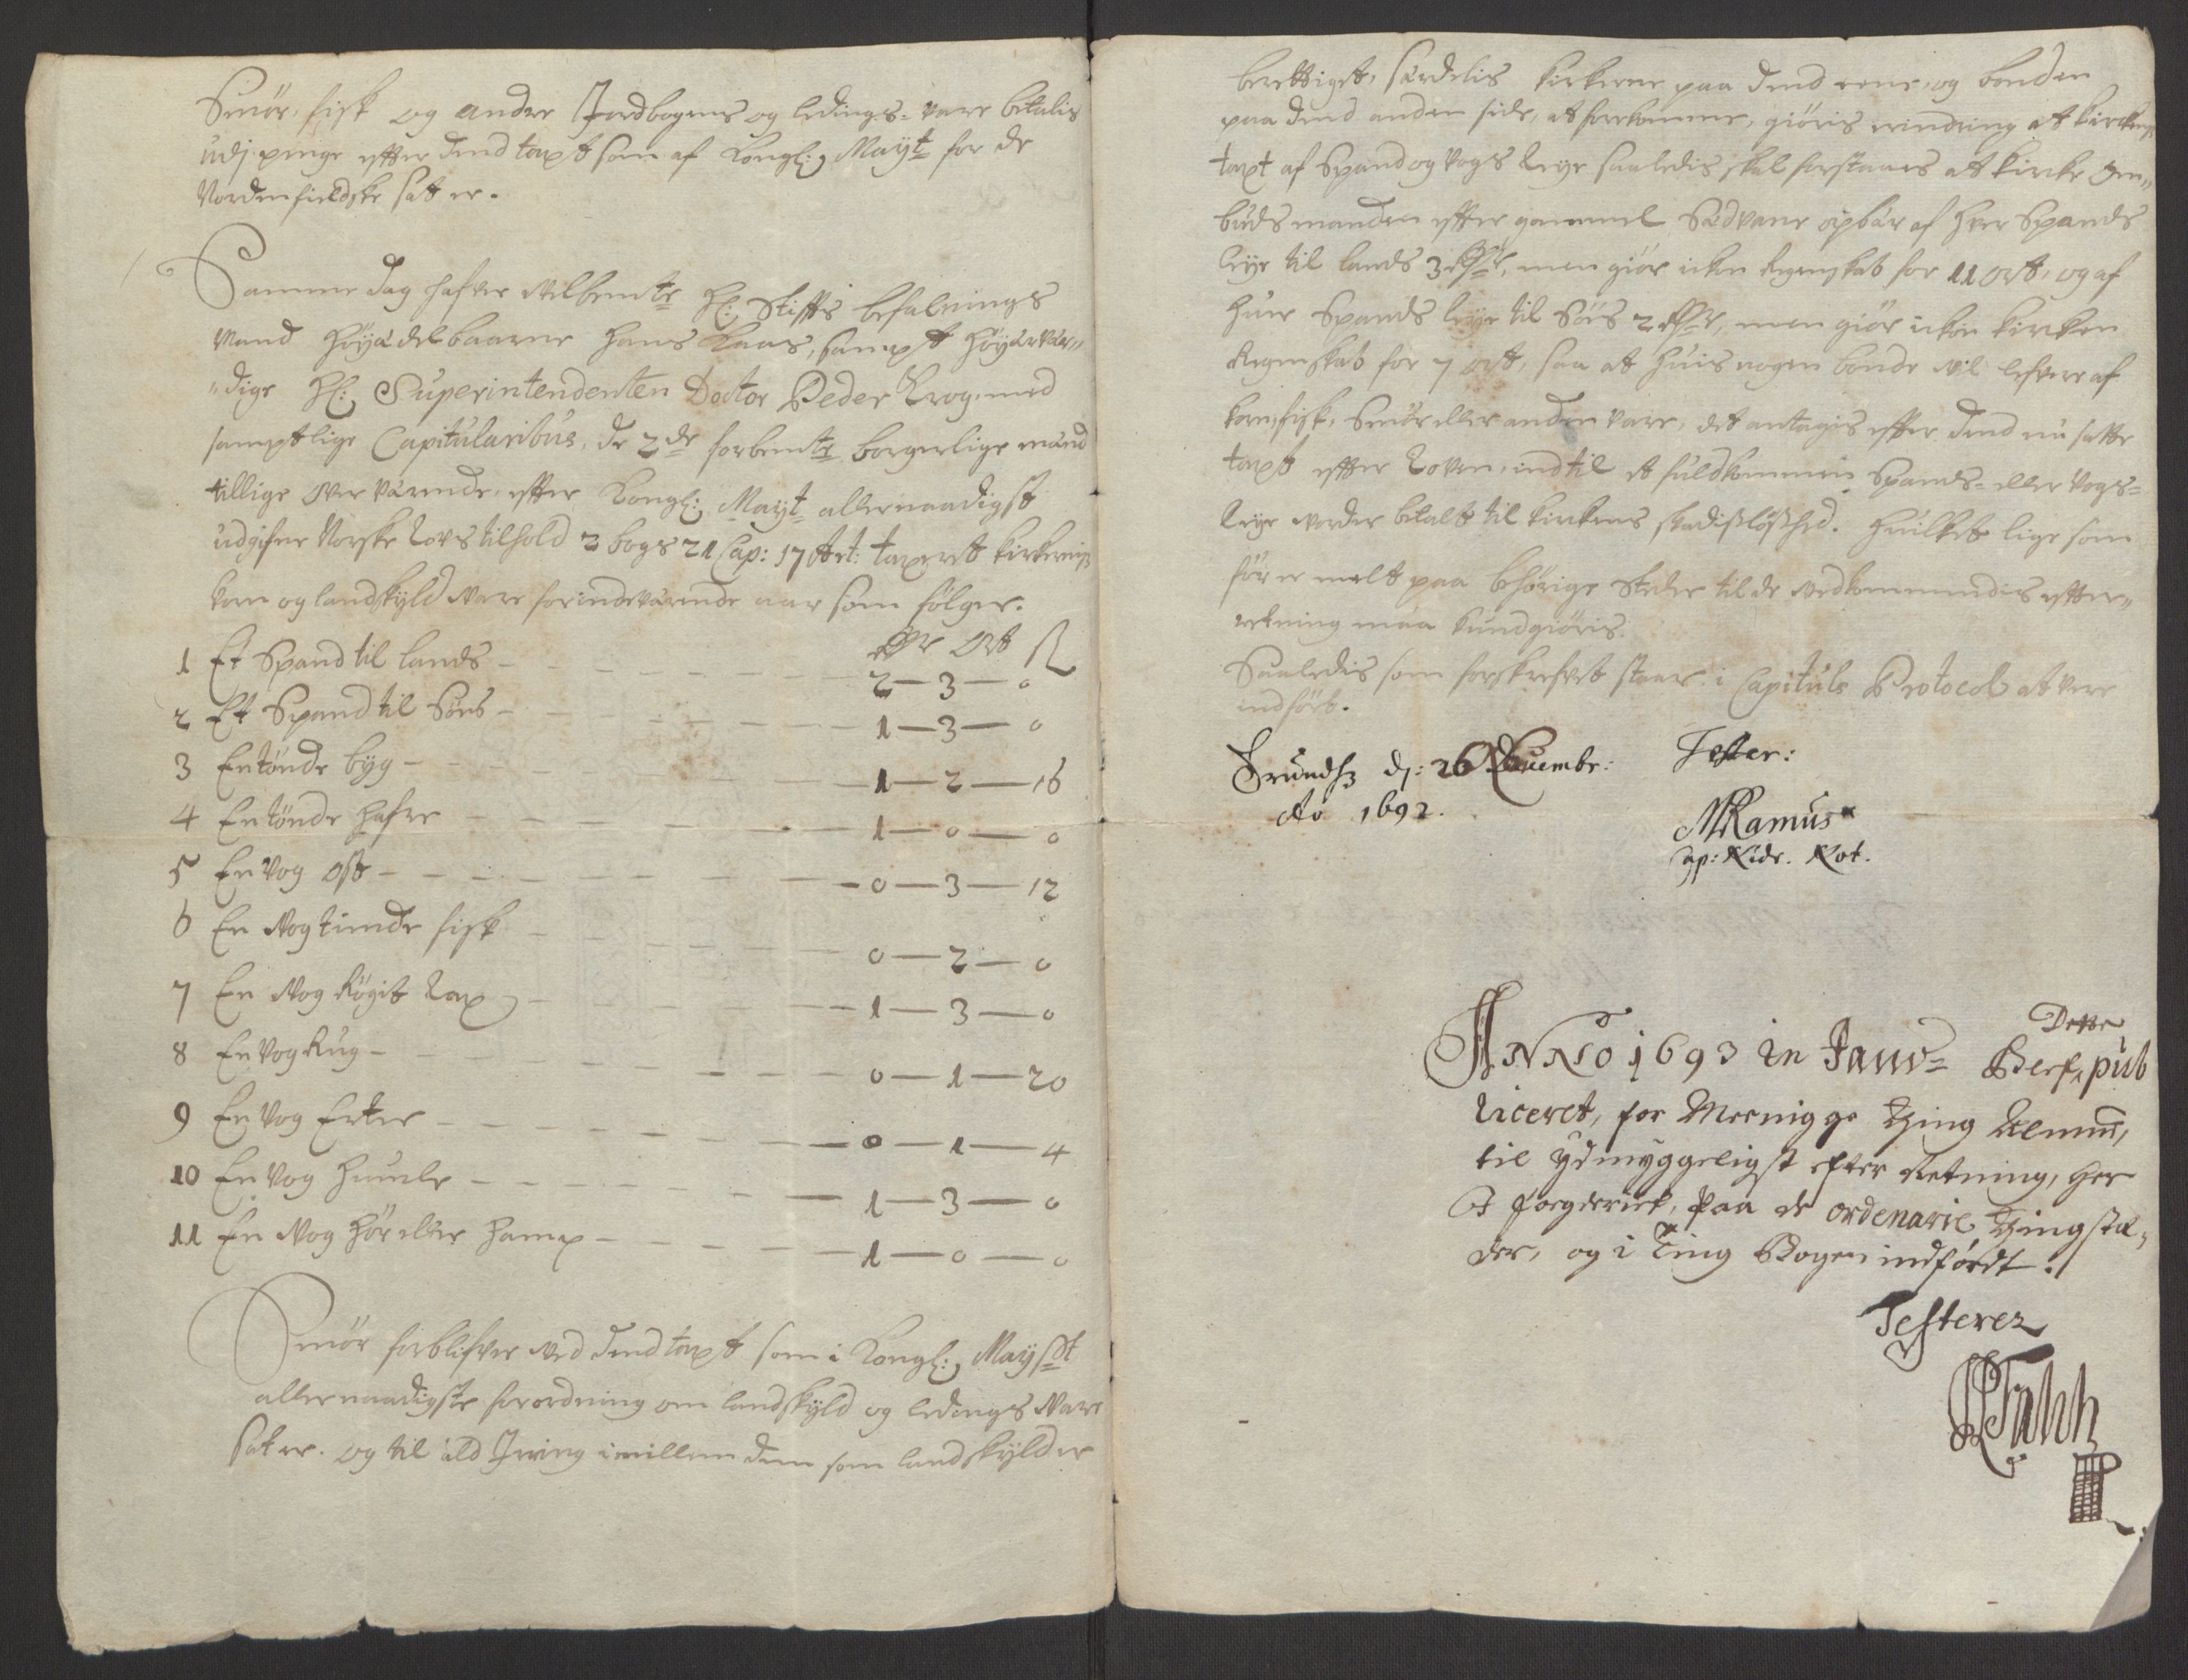 Smör, fisk og andre Jordbogens og ledings-vare betalis
udj penge effter dend taxt som af Kongl: Mayt for de
Nordenfieldske sat er.
Samme dag hafver velbemte Hr: Stiffts befalnings
Mand Höyædelbaarne Hans Kaas, sampt Höyærvær„
„dige Hr: Superintendenten Doctor Peder Krog, med
samptlige Capitularibus, de 2de forbemte borgerlige mænd
tillige overværende, effter Kongl: Mayt allernaadigst
udgifne Norske Lovs tilhold 2 bogs 21 Cap: 17 Art: taxerett kirkernis
korn og landskyld vare for indeværende aar som fölger.
Rdr Ort ß
1 Et Spand til lands - 2 — 3 — 0
2 Et Spand til Söes - 1 — 3 — 0
3 En tönde byg - 1 — 2 — 16
4 En tönde hafre - 1 — 0 — 0
5 En Vog Ost - 0 — 3 — 12
6 En Vog tiende fisk - 0 — 2 — 0
7 En Vog Rögit Lax - 1 — 3 — 0
8 En Vog Rug - 0 — 1 — 20
9 En Vog Erter - 0 — 1 — 4
10 En Vog Humle - 1 — 3 — 0
11 En Vog Hör eller Hamp - 1 — 0 — 0
Smör forblifver ved dend taxt som i Kongl: Mayst
allernaadigste forordning om landskyld og ledings Vare
sat er. Og til ald Irring imellem dem som landskylder
berettiget, særdelis kirkerne paa dend eene, og bonden
paa dend anden side, at forekomme, giöris erindring at kirkens
taxt af Spand og Vogs leye saaledis skal forstaaes at kirke om„
budsmanden effter gammel Sædvane opbær af hver Spands
leye til lands 3 Rdr, men giör ickon Regenskab for 11 ort, og af
huer Spands leye til Söes 2 Rdr, men giör ickon kircken
Regenskab for 7 ort, saa at huis nogen bonde vil lefvere af
korn, fisk, Smör eller anden vare, det antagis effter dend nu satte
taxt effter Loven, indtil et fuldkommen Spands- eller Vogs-
leye vorder betalt til kirkens skadislöshed. Huilket lige som
för er melt paa behörige Steder til de vedkommendis effter„
retning maa kundgiöris.
Saaledis som forskrefvet staar i Capituls Protocol at vere
indfört.
Trundhz dj: 26 Decembr: Tester:
Ao 1692.
MRamus
Cap: Nidr. Not.
Anno 1693 in Janv= Dette
Bleff pub
liceret, for Meenigge Ting Almu,
til ydmyggeligst efter Retning, her
paa de ordenarie Tingstæ„
der, og i Ting Bogen indfördt.
Testerer